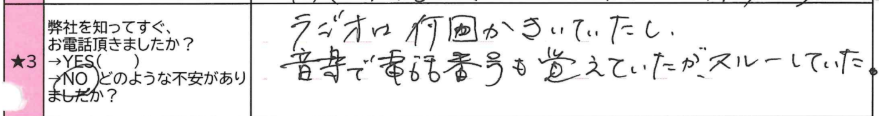 ★3
弊社を知ってすぐ、
お電話頂きましたか?
→YES(　　)
→NO どのような不安があり
ましたか?
ラジオは何回かきいていたし、
音楽で電話番号も覚えていたが、スルーしていた。